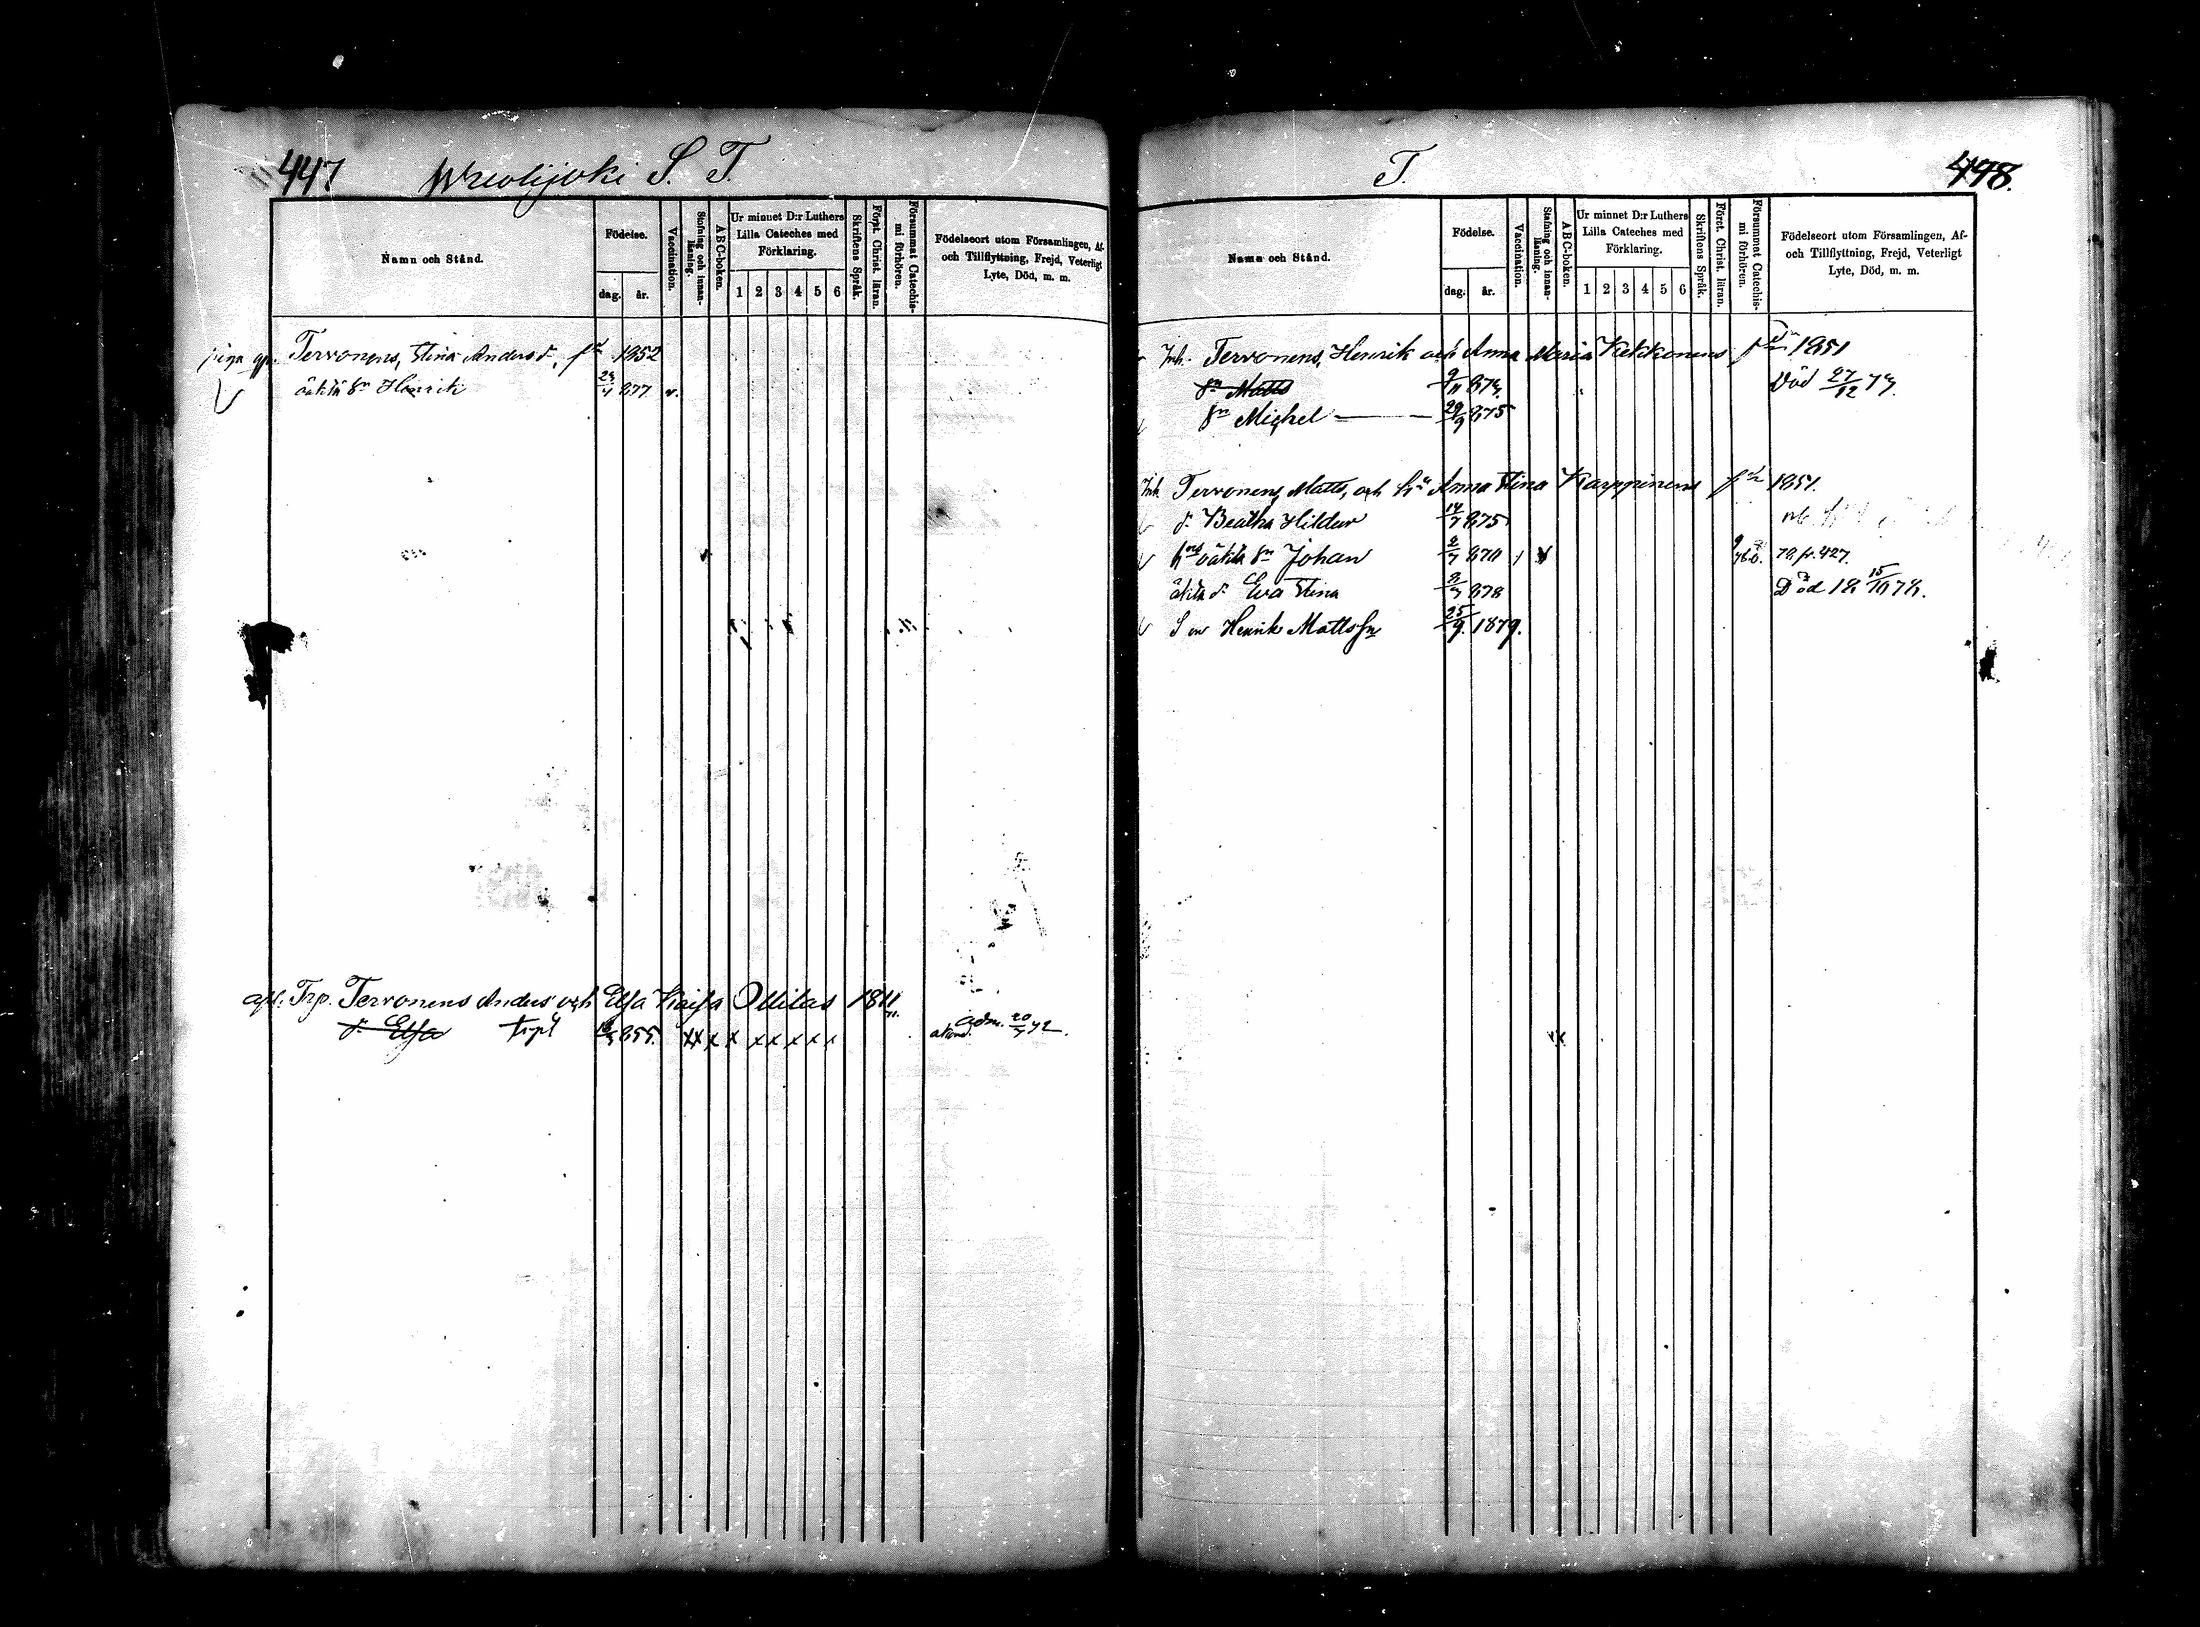 447 Wuolijoki S. T.
Namn och Stånd.
Födelse.
dag. år.
Vaccination.
Stafning och innanläsning.
ABC-boken.
Ur minnet D:r Luthers
Lilla Cateches med
Förklaring.
1 2 3 4 5 6
Skriftens Språk.
Föret. Christ. läran.
Försummat Catechismi förhören.
Födelseort utom Församlingen, Af-
och Tillflyttning, Frejd, Veterligt
Lyte, Död, m. m.
piga Tervonens, Stina Andersd. 1852
oäkta Sn Henrik 877 v.
Trp. Tervonens Anders och Elsa Kaisa Ollilas 1811
d. Elsa 855 xx x x x x x x x adm. 20/7 72.
T. 498.
Namn och Stånd.
Födelse.
dag. år.
Vaccination.
Stafning och innanläsning.
ABC-boken.
Ur minnet D:r Luthers
Lilla Cateches med
Förklaring.
1 2 3 4 5 6
Skriftens Språk.
Föret. Christ. läran.
Försummat Catechismi förhören.
Födelseort utom Församlingen, Af-
och Tillflyttning, Frejd, Veterligt
Lyte, Död, m. m.
Inh. Tervonens, Henrik och Anna Maria Kekkonens 1851
Sn Matts 9/11 874. Död 27/12 74.
Sn Michel 29/9 875
Inh. Tervonens, Matts, och hu Anna Stina Karppinens 1851.
d. Beatha Hildur 14/7 875
oäkta Sn Johan 870 fr. 427.
äkta d. Eva Stina 878 Död 18 15/10 78.
Son Henrik Mattsson 25/9. 1879.